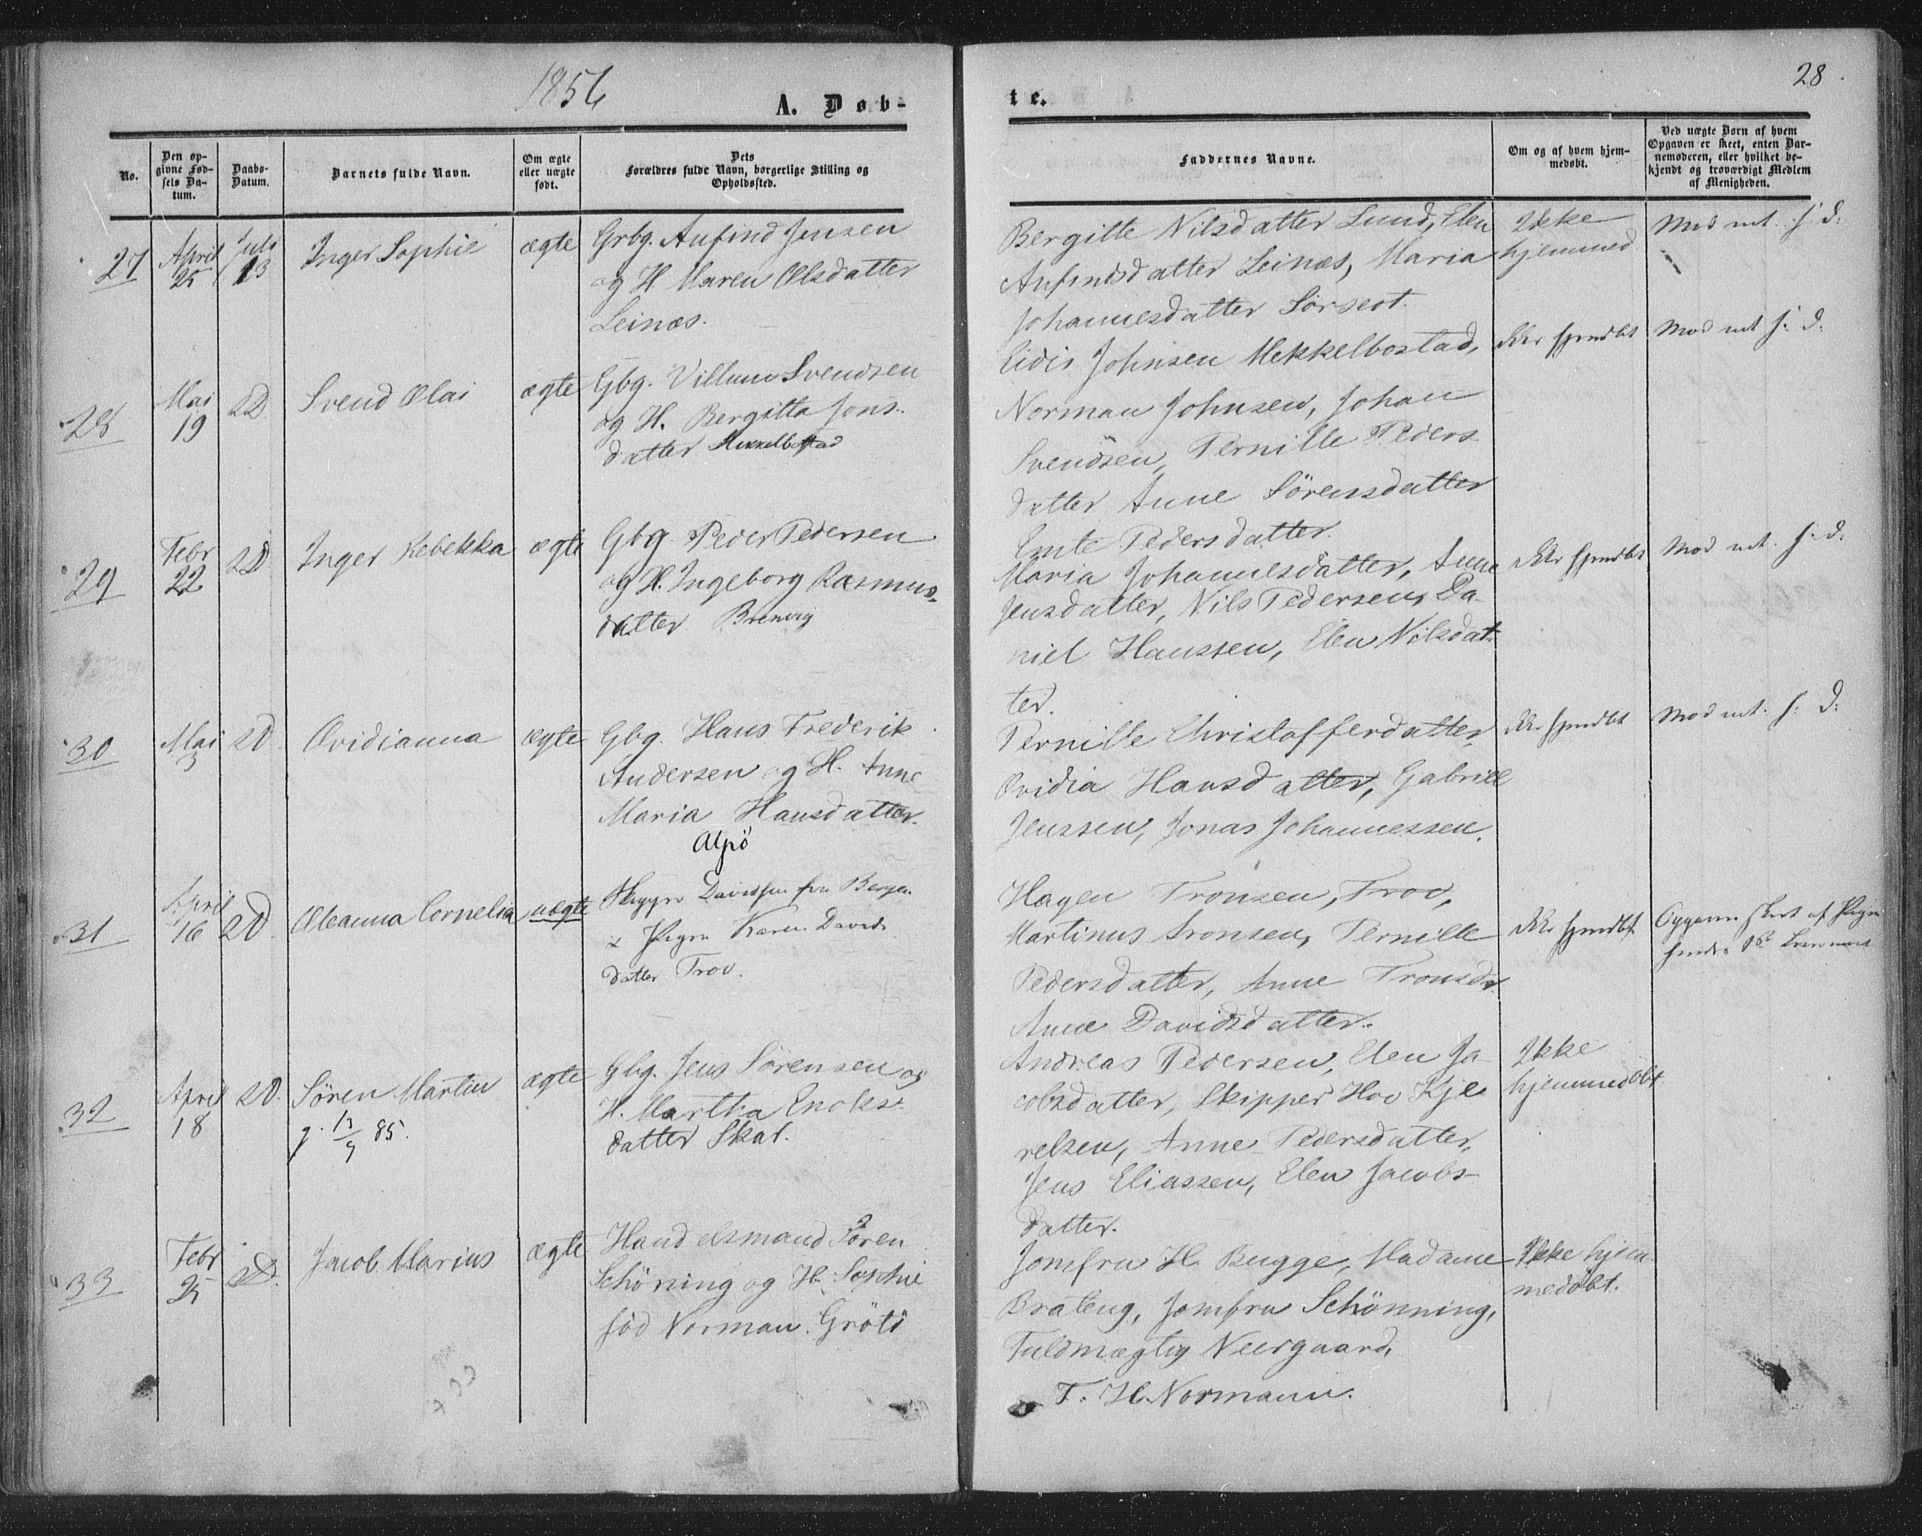 1856
28
A. Døb-
te.
No.
Den opgivne Fødsels Datum.
Daabs-Datum.
Barnets fulde Navn.
Om ægte eller uægte født.
Dets Forældres fulde Navn, borgerlige Stilling og Opholdssted.
Faddernes Navne.
Om og af hvem hjemmedøbt.
Ved uægte Børn af hvem Opgaven er skeet, enten Barnemoderen, eller hvilket bekjendt og troværdigt Medlem af Menigheden.
27
April 25
Juli 13
Inger Sophie
ægte
Grbg. Anfind Jensen
og H. Maren Olsdatter
Leinæs.
Bergitte Nilsdatter Lund, Elen
Anfindsdatter Leinæs, Maria
Johannesdatter
Ikke
hjemmed
28
Mai 19
SD
Svend Olai
ægte
Gbg. Villum Svendsen
og H. Bergitta Jons-
datter Mekkelbostad
Eidis Johnsen Mekkelbostad,
Norman Johnsen, Johan
Svendsen, Pernille Peders
datter Anne Sörensdatter
29
Febr 22
SD
Inger Rebekka
ægte
Gbg. Peder Pedersen
og H. Ingeborg Rasmus-
datter Brenvig
Pedersdatter.
Maria Johannesdatter, Anne
Jensdatter, Nils Pedersen, Da-
niel Hanssen, Elen Nilsdat-
ter.
30
Mai 3
SD.
Ovidianna
ægte
Gbg. Hans Frederik
Andersen og H. Anne
Maria Hansdatter.
Alpö
Pernille Christofferdatter,
Ovidia Hansdatter, Gabriel
Jenssen, Jonas Johannessen.
31
April 16
SD
Oleanna Cornelia
uægte
Davidsen fra Bergen
Karen Davids
datter Trov.
Hagen Tronsen, Trov,
Martinus Tronsen, Pernille
Pedersdatter, Anne Tronsdr.
Anne Davidsdatter.
32
April 18
SD.
Sören Martin
13/9 85.
ægte
Gbg. Jens Sörensen og
H. Martha Enoks-
datter Skal.
Andreas Pedersen, Elen Ja-
cobsdatter, Skipper Hov Kje
relsen, Anne Pedersdatter,
Jens Eliassen, Elen Jacobs-
datter.
Ikke
hjemmedöbt
33
Febr 25
SD.
Jacob Marius
ægte
Handelsmand Sören
Schöning og H. Sophie
föd Norman. Grötö
Jomfru H. Bugge, Madame
Brateng, Jomfru Schönning,
Fuldmægtig Neergaard,
T. H. Normann.
Ikke hjem-
medöbt.